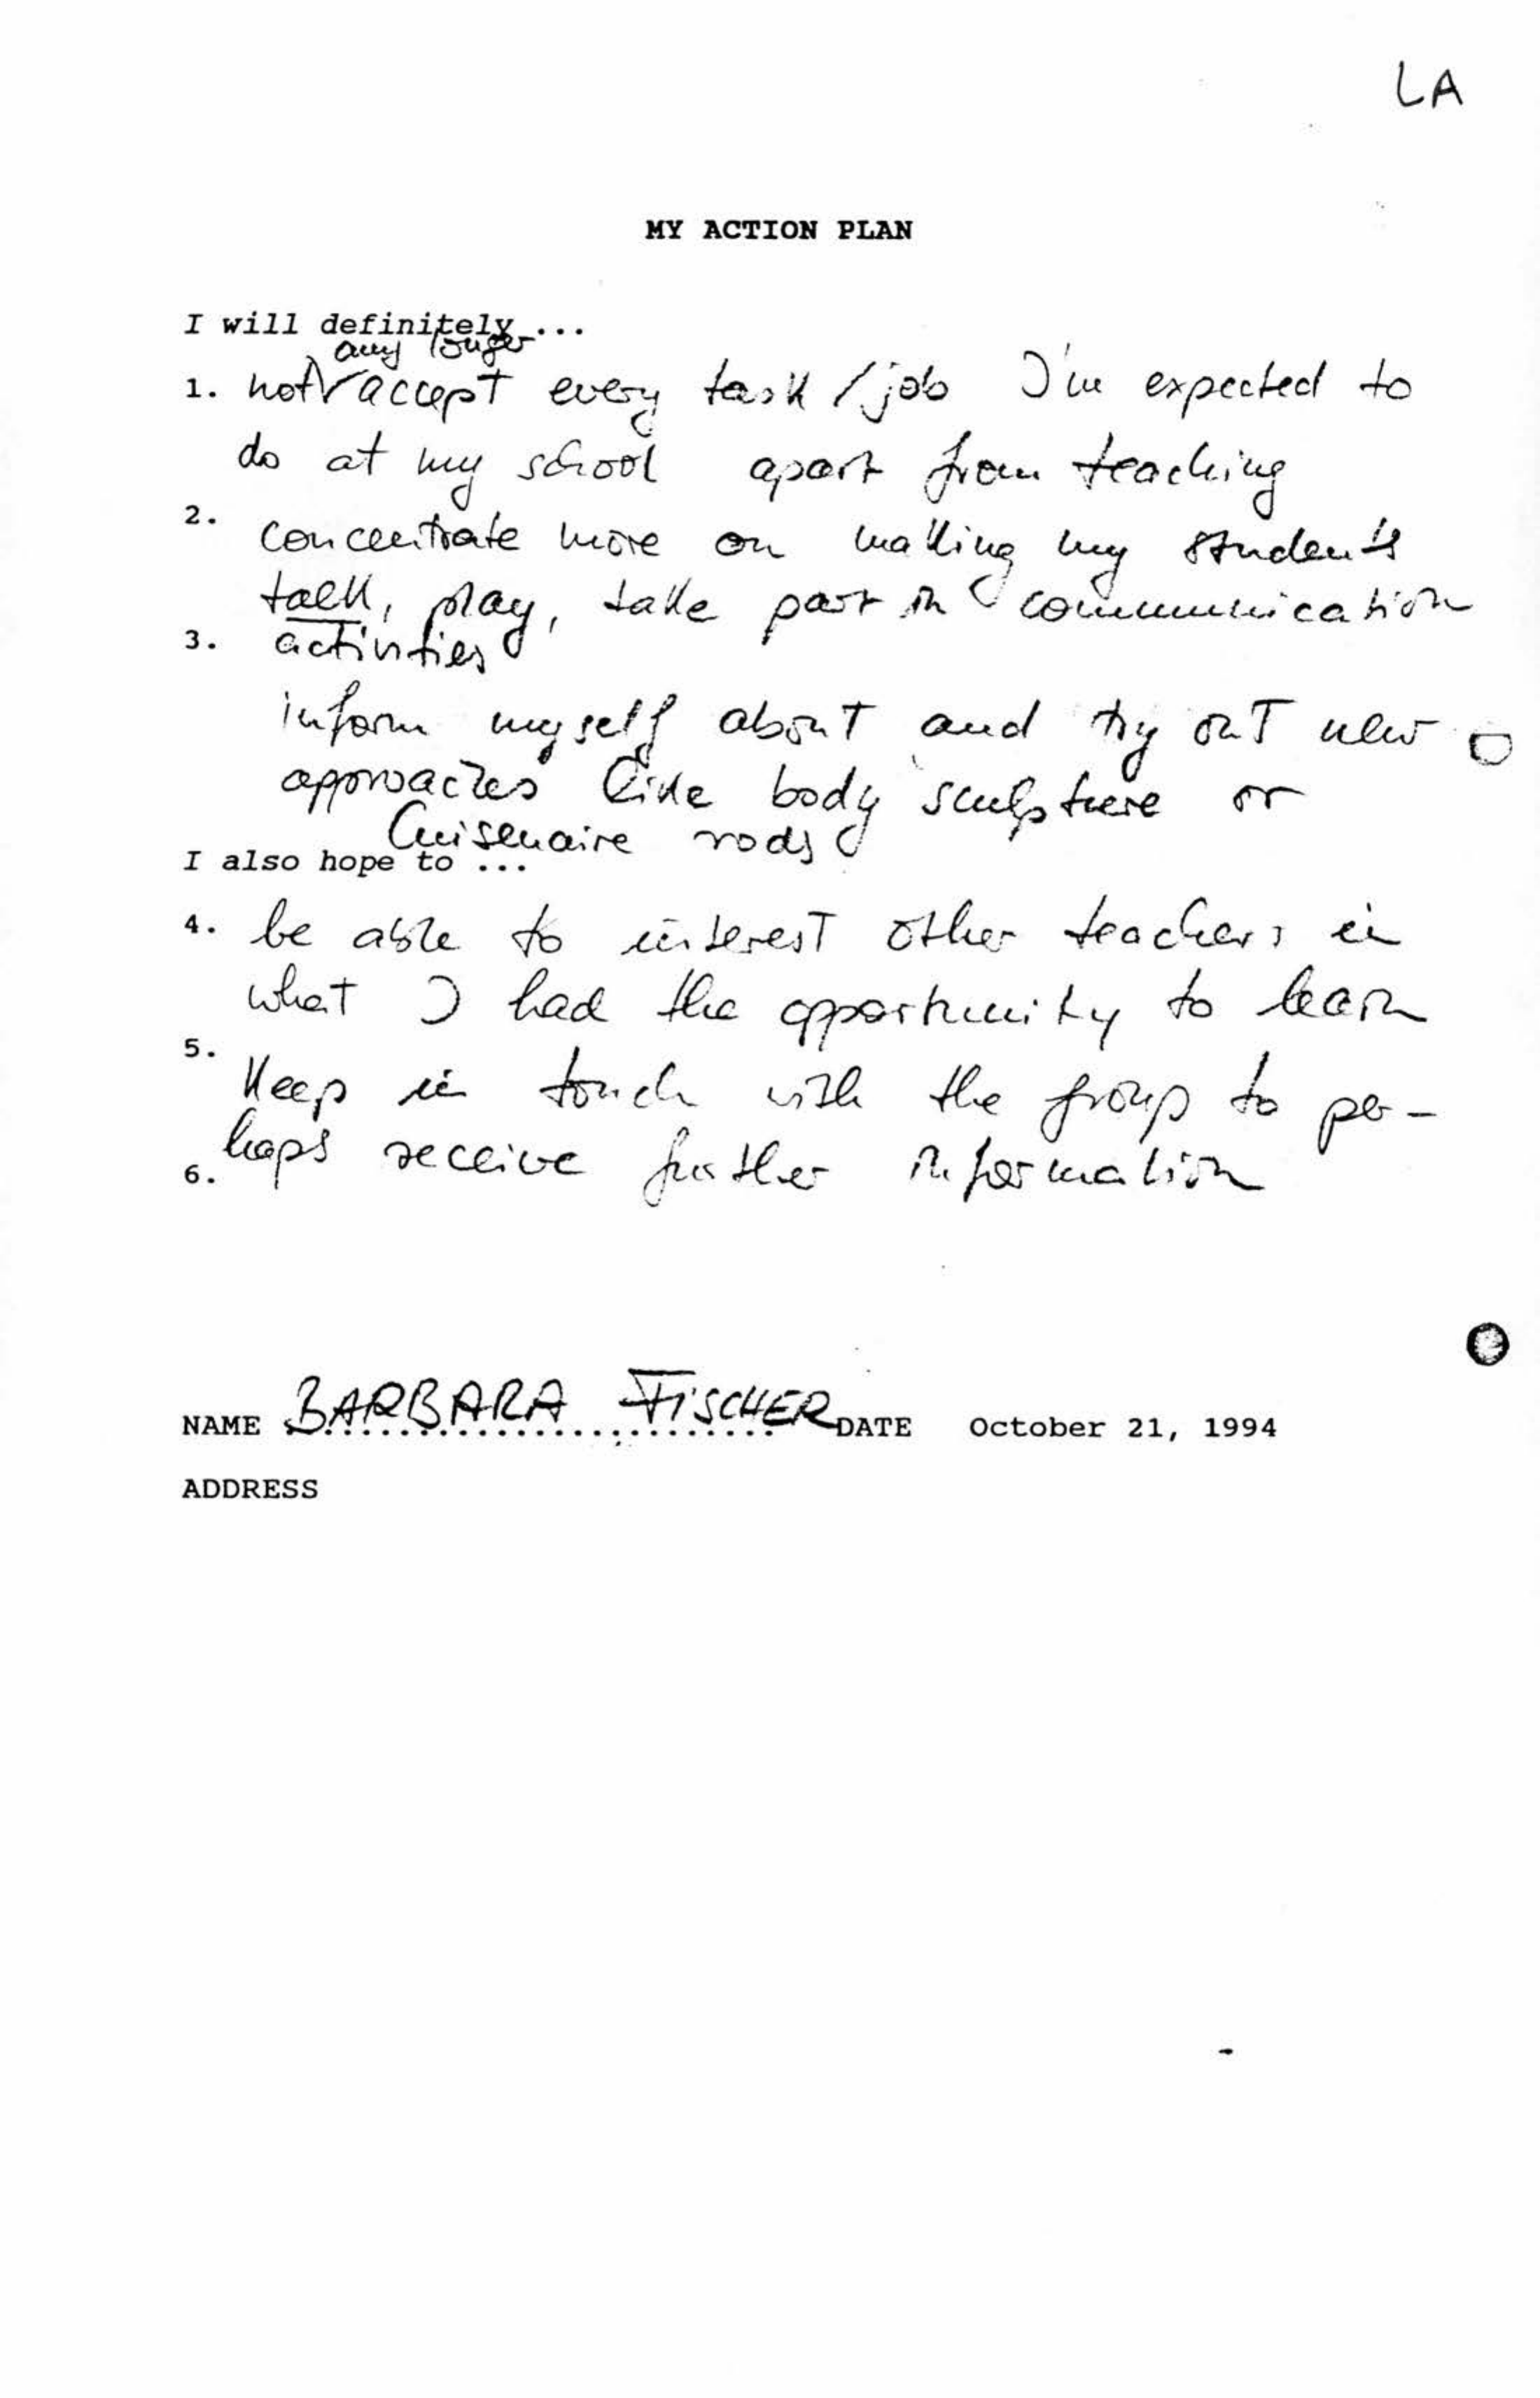 LA
MY ACTION PLAN
I will definitely ...
any longer
1. not accept every task / job I'm expected to
do at my school apart from teaching
2. concentrate more on making my students
talk, play, take part in communication
3. activities
inform myself about and try out new
approaches like body sculpture or
Cuisenaire rods
I also hope to ...
4. be able to interest other teachers in
what I had the opportunity to learn
5.
keep in touch with the group to per-
haps receive further information
6.
NAME BARBARA FISCHER DATE October 21, 1994
ADDRESS